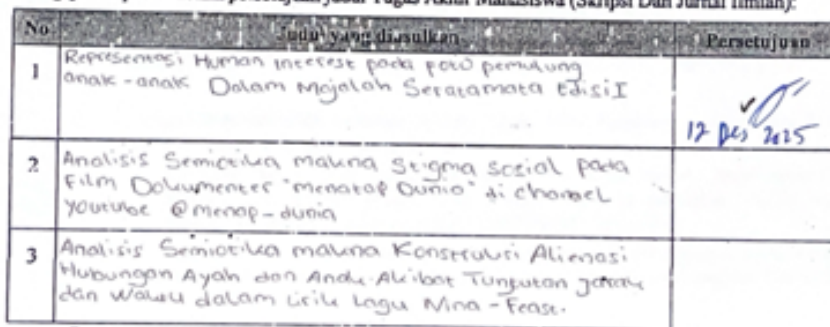 persetujuan judul Tugas Akhir Mahasiswa (Skripsi Dan Jurnal Ilmiah).
No Judul yang diusulkan Persetujuan
1 Representasi Human interest pada foto pemulung
anak-anak Dalam Majalah Seratamata Edisi I
12 Des 2025
2 Analisis Semiotika makna Stigma sosial pada
Film Dokumenter "menatap Dunia" di channel
youtube @menap-dunia
3 Analisis Semiotika makna Konstruksi Alienasi
Hubungan Ayah dan Anak Akibat Tuntutan Jarak
dan Waktu dalam lirik lagu Nina - Feast.